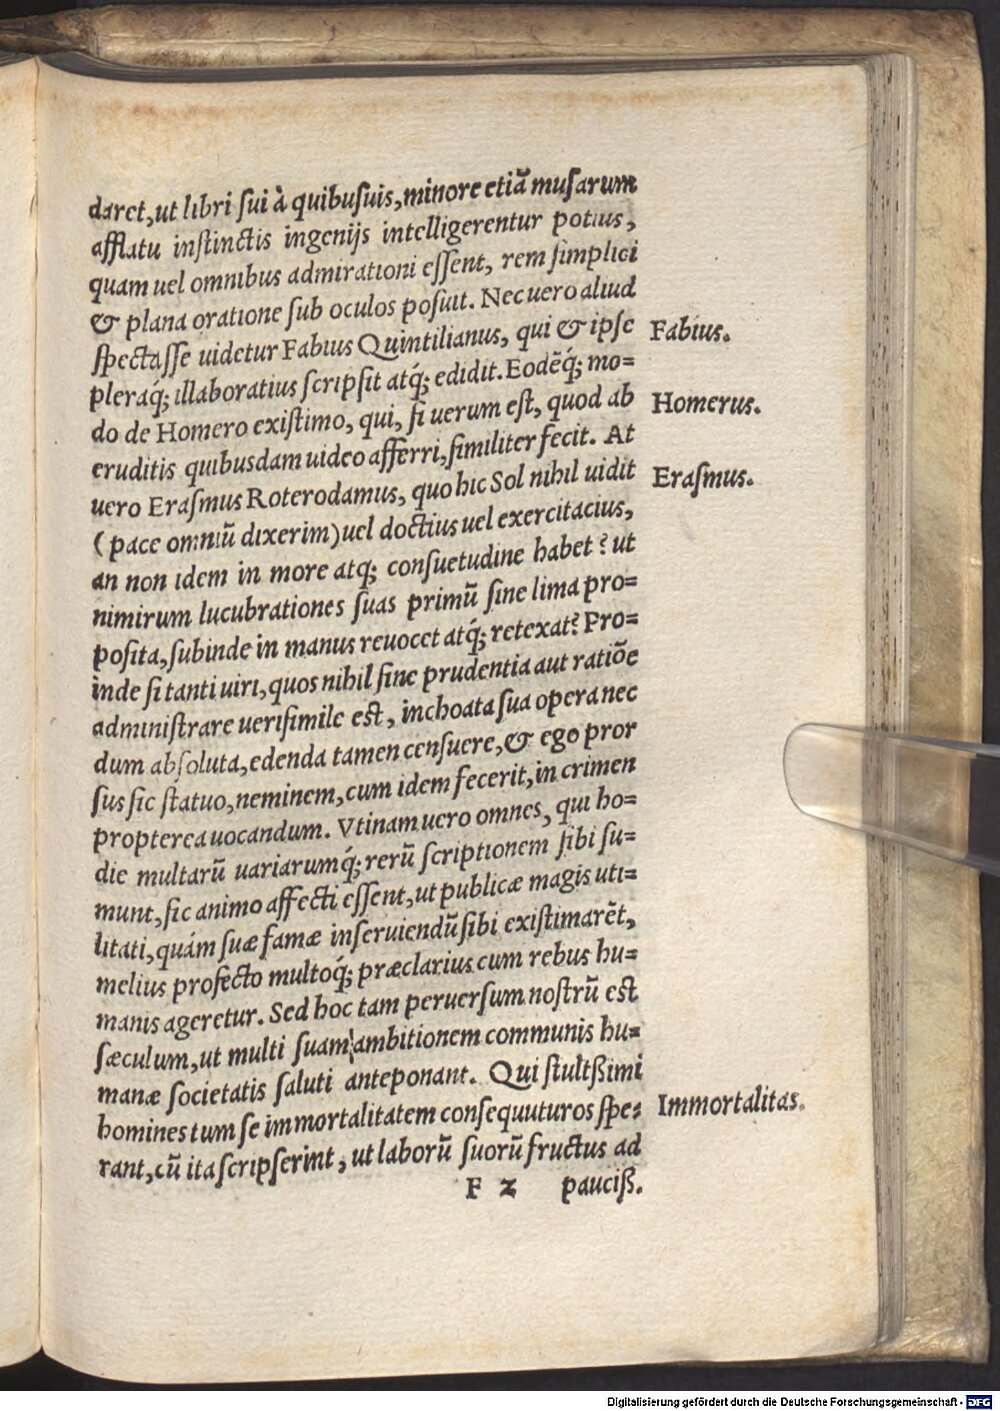 daret, ut libri ſui à quibuſuis, minore etiã muſarum
afflatu inſtinctis ingenijs intelligerentur potius,
quam uel omnibus admirationi eſſent, rem ſimplici
& plana oratione ſub oculos poſuit. Nec uero aliud
ſpectaſſe uidetur Fabius Quintilianus, qui & ipſe
Fabius.
pleraq́; illaboratius ſcripſit atq́; edidit. Eodẽq́; mo=
do de Homero exiſtimo, qui, ſi uerum eſt, quod ab
Homerus.
eruditis quibusdam uideo afferri, ſimiliter fecit. At
uero Eraſmus Roterodamus, quo hic Sol nihil uidit
Eraſmus.
(pace omniũ dixerim) uel doctius uel exercitacius,
an non idem in more atq; conſuetudine habet? ut
nimirum lucubrationes ſuas primũ ſine lima pro=
poſita, ſubinde in manus reuocet atq́; retexat? Pro=
inde ſi tanti uiri, quos nihil ſine prudentia aut ratiõe
adminiſtrare ueriſimile eſt, inchoata ſua opera nec
dum abſoluta, edenda tamen cenſuere, & ego pror
ſus ſic ſtatuo, neminem, cum idem fecerit, in crimen
propterea uocandum. Vtinam uero omnes, qui ho=
die multarũ uariarumq́; rerũ ſcriptionem ſibi ſu=
munt, ſic animo affecti eſſent, ut publicæ magis uti=
litati, quám ſuæ famæ inſeruiendũ ſibi exiſtimarẽt,
melius profecto multoq́; præclarius cum rebus hu=
manis ageretur. Sed hoc tam peruerſum noſtrũ eſt
ſæculum, ut multi ſuam ambitionem communis hu=
manæ ſocietatis ſaluti anteponant. Qui ſtultßimi
homines tum ſe immortalitatem conſequuturos ſpe=
Immortalitas.
rant, cũ ita ſcripſerint, ut laborũ ſuorũ fructus ad
F 2 pauciß.
Digitalisierung gefördert durch die Deutsche Forschungsgemeinschaft - DFG